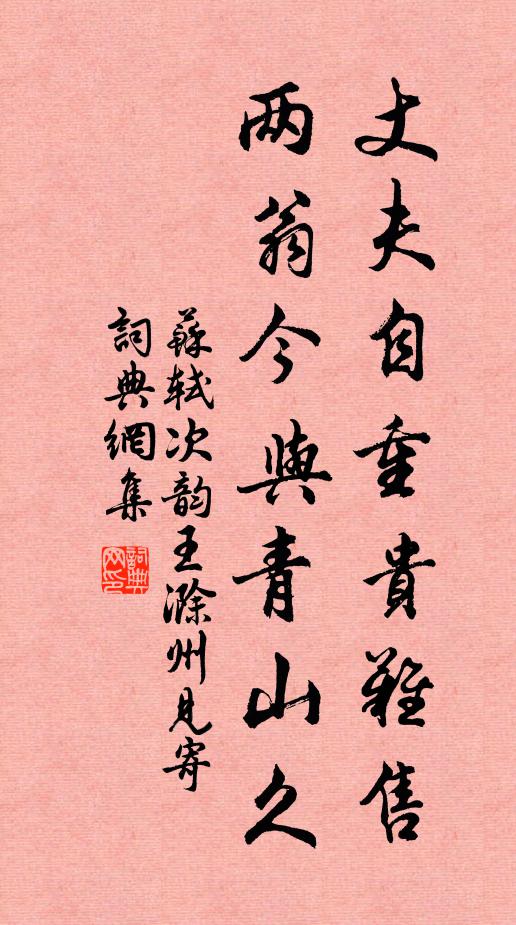 丈夫自重貴難售
两翁今與青山久
蘇軾次韵王滁州見寄
詞典網集
詞典网印